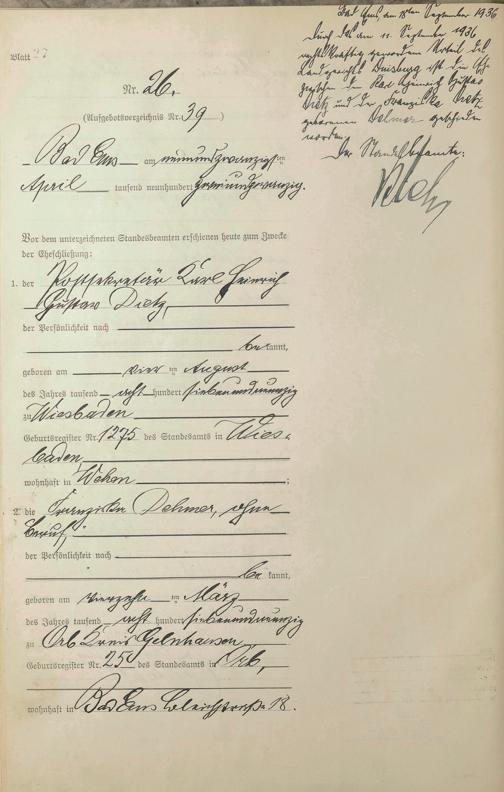 Blatt 27
Nr. 26.
(Aufgebotsverzeichnis Nr. 39.)
Bad Ems am neunundzwanzigsten
April tausend neunhundert zweiundzwanzig.
Vor dem unterzeichneten Standesbeamten erschienen heute zum Zwecke
der Eheschließung:
1. der Postsekretär Karl Heinrich
Gustav Dietz,
der Persönlichkeit nach
be kannt,
geboren am vier ten August
des Jahres tausend acht hundert siebenundneunzig
zu Wiesbaden
Geburtsregister Nr. 1275 des Standesamts in Wies-
baden,
wohnhaft in Wehen ;
2. die Franziska Dehmer, ohne
Beruf,
der Persönlichkeit nach
be kannt,
geboren am vierzehn ten März
des Jahres tausend acht hundert siebenundneunzig
zu Orb Kreis Gelnhausen,
Geburtsregister Nr. 25 des Standesamts in Orb,
wohnhaft in Bad Ems Bleichstraße 18.
Bad Ems, am 18ten September 1936
Durch das am 11. September 1936
rechtskräftig gewordene Urteil des
Landgerichts Duisburg ist die Ehe
zwischen dem Karl Heinrich Gustav
Dietz und der Franziska Dietz
geborenen Dehmer geschieden
worden.
Der Standesbeamte: